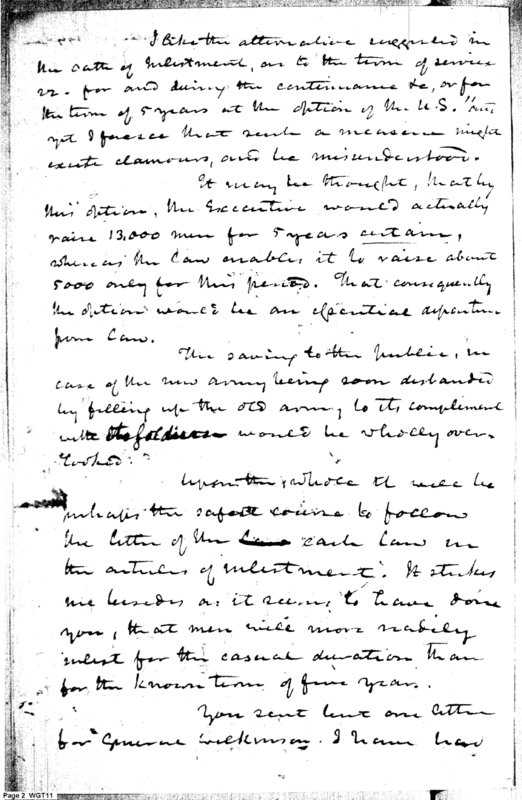 I like the alternative suggested in
the oath of Inlistment, as to the term of service
vz. for and during the continuance &c, or for
the term of 5 years at the option of the U.S. but
yet I foresee that such a measure might
excite clamours, and be misunderstood.
It may be thought, that by
this option, the Executive would actually
raise 13,000 men for 5 years certain,
whereas the law enables it to raise about
5000 only for this period. That consequently
the option would be an essential departure
from law.
The saving to the public, in
case of the new army being soon disbanded
by filling up the old army to its complement
with would be wholly over-
looked.
Upon the whole it will be
perhaps the safest course to follow
the letter of the each law in
the articles of inlistment. It strikes
me besides as it seems to have done
you, that men will more readily
inlist for the casual duration than
for the known term of five years.
You sent but one letter
for General Wilkinson. I have had
Page 2 WGT11